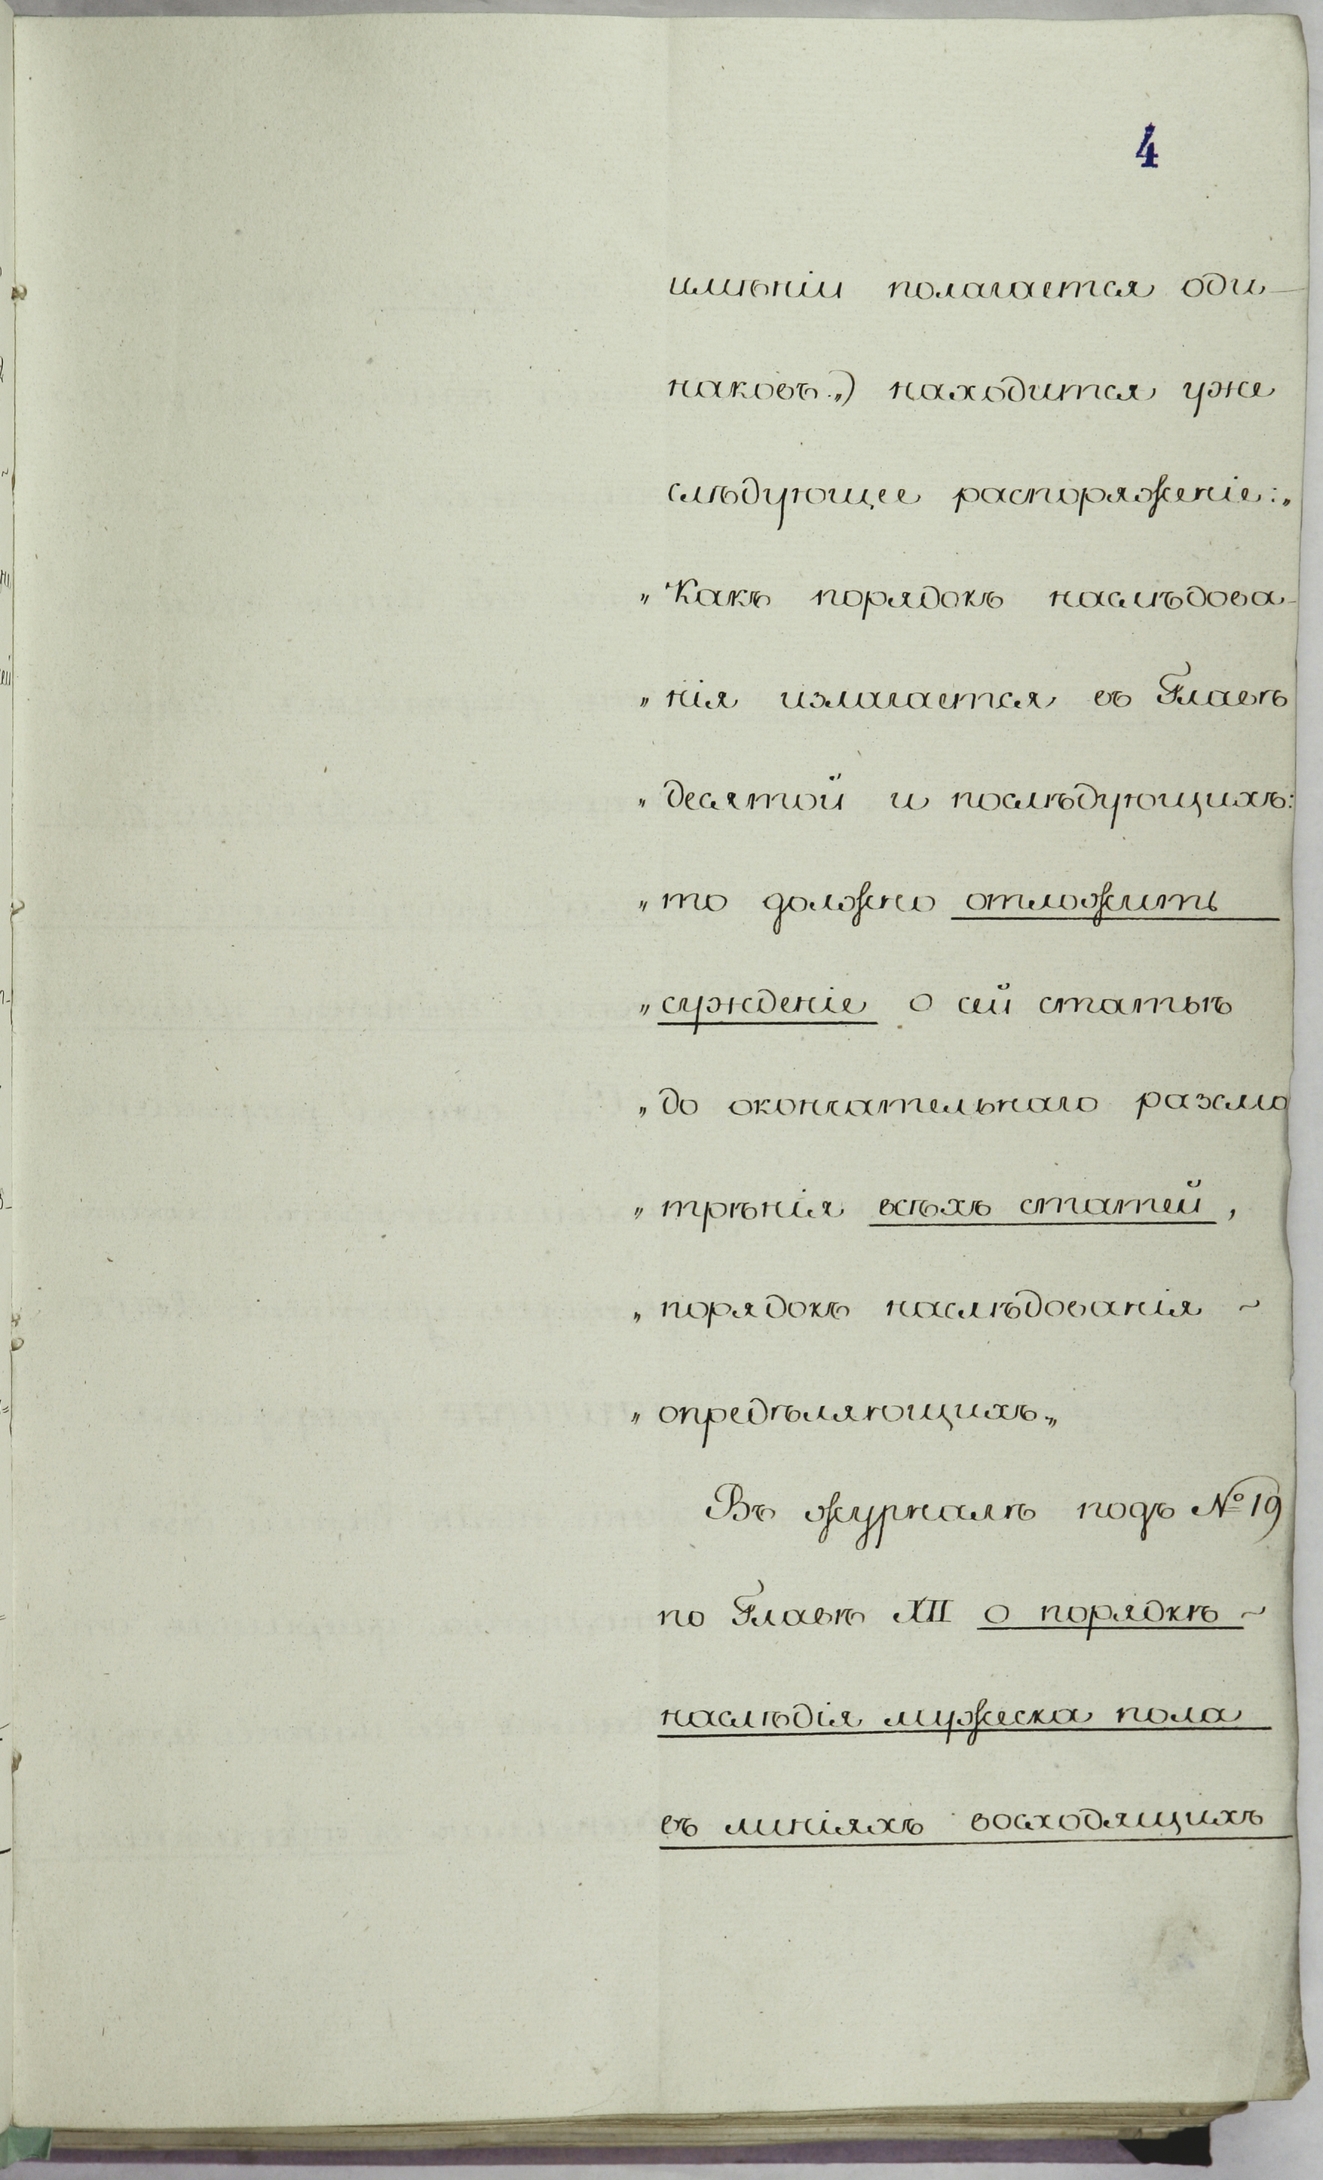 4
имѣніи полагается оди-
наковъ.„) находится уже
слѣдующее распоряженіе:„
„Какъ порядокъ наслѣдова-
„нія излагается въ Главѣ
„десятой и послѣдующихъ:
„то должно отложить
„сужденіе о сей статьѣ
„до окончательнаго разсмо
„трѣнія всѣхъ статей,
„порядокъ наслѣдованія ~
„опредѣляющихъ„
Въ журналѣ подъ № 19
по Главѣ XII о порядкѣ ~
наслѣдія мужеска пола
въ линіяхъ восходящихъ